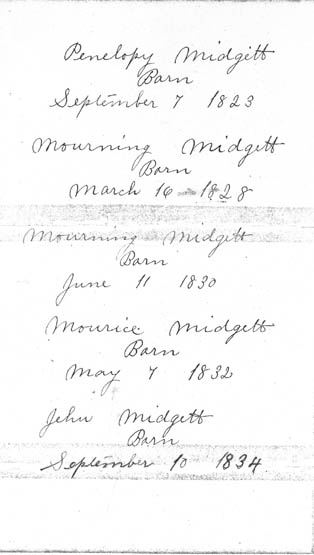 Penelopy Midgett
Barn
September 7 1823
Mourning Midgett
Barn
March 16 - 1828
Mourning Midgett
Barn
June 11 1830
Mourice Midgett
Barn
May 7 1832
Jehu Midgett
Barn
September 10 1834